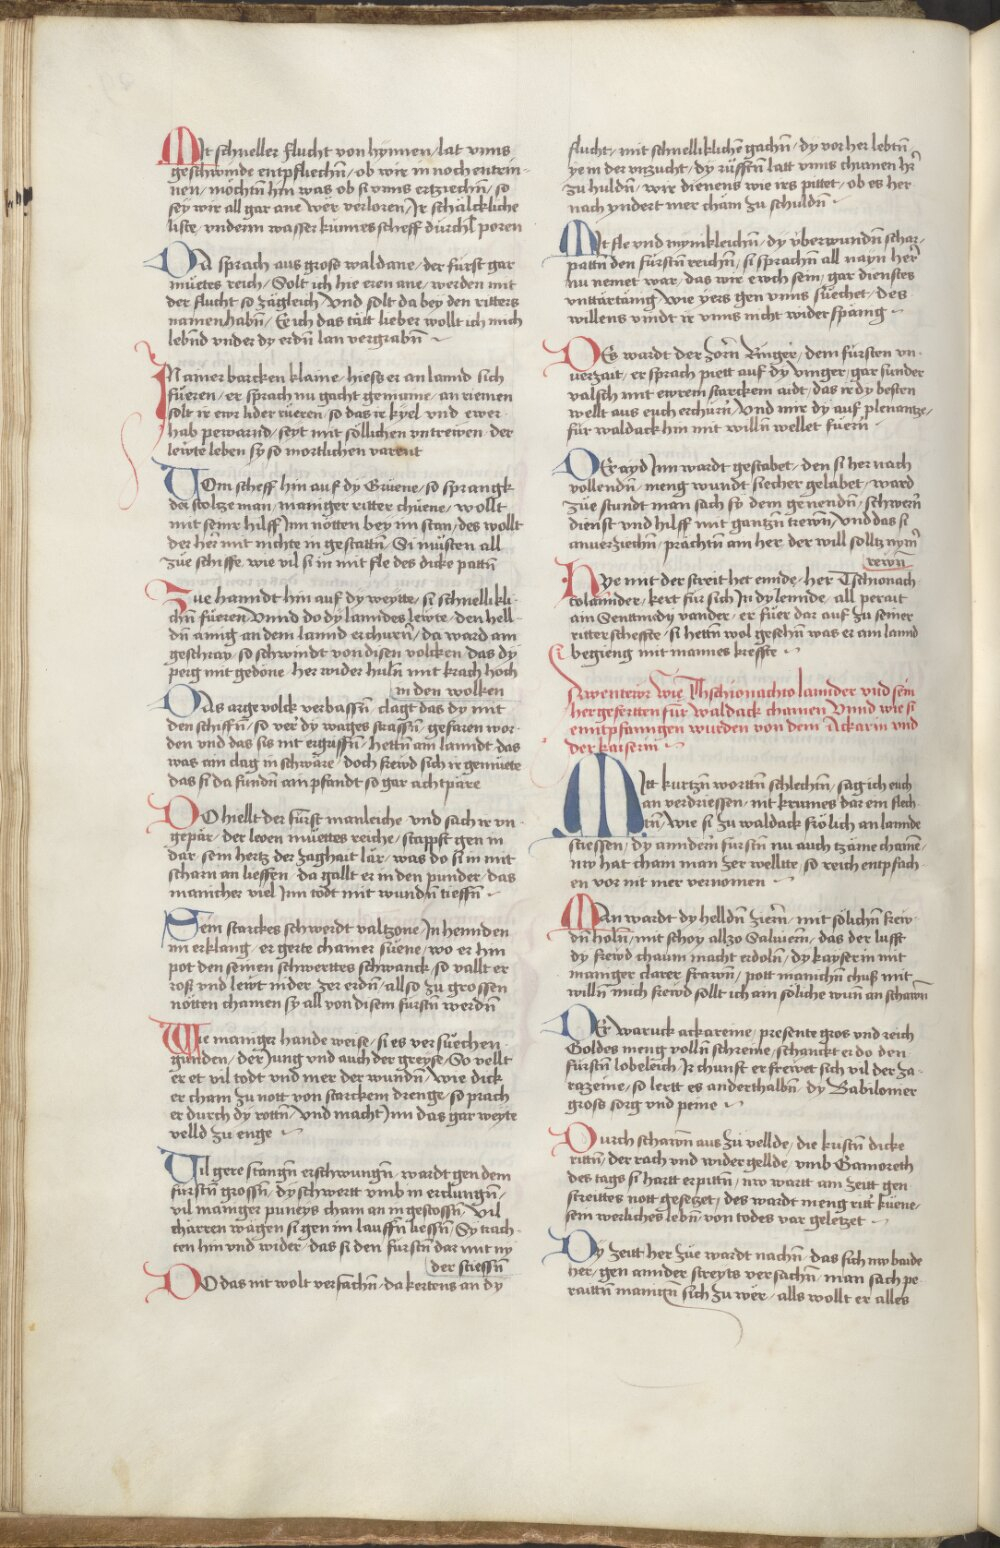 Mit schneller flucht von hynnen / lat vnns
geschwinde entpfliechn̄ / ob wir in noch entrin-
nen / möchtn̄ hin was ob si vnns ertziechn̄ / so
sey wir all gar ane wer verloren / Ir schalckliche
liste / vnderm wasser künnes scheff durchl poren
Da sprach aus gross waldane / der fürst gar
müetes reich / Solt ich hie eren ane / werden mit
der flucht so zägleich / Vnd solt da bey den ritters
namen habn̄ / Ee ich das tätt lieber wollt ich mich
lebn̄d vnder dy erdn̄ lan vergrabn̄
In ainer barcken klaine / hiess er an lannd sich
füeren / er sprach nu gacht gemaine / an riemen
solt ir ewr lider rüeren / so das ir kyel vnd ewer
hab pewarnd / seyt mit söllichen vntrewen der
lewte leben sy so mortlichen varent
Vom scheff hin auf dy Grüene / so sprangk
der stoltze man / maniger ritter chüene / wollt
mit seinr hilff Im nötten bey im stan / des wollt
der her mit nichte in gestattn̄ / Si müsten all
züe schiffe / wie vil si in mit fle des dicke pattn̄
Zue hanndt hin auf dy weytte / si schnellikli-
chn̄ füeren / Vnnd do dy lanndes lewte / den hell-
dn̄ ainig an dem lannd erchurn̄ / da ward ain
geschray / so schwindt von disen volcken / das dy
perg mit gedöne / her wider huln̄ mit krach hoch
in den wolcken
Das arge volck verbassn̄ / clagt das dy mit
den schiffn̄ / so ver dy wages strassn̄ / gefaren wor-
den vnd das sis nit ergriffn̄ / hettn̄ am lanndt das
was ain clag in schwäre / doch frewd sich ir gemüete
das si da fundn̄ ain pfandt so gar achtpäre
Do hiellt der fürst manleiche / vnd sach ir vn-
gepär / der leoen müettes reiche / stappft gen in
dar / sein hertz der zaghait lär / was do si in mit
scharn an lieffen / da gallt er in den punder / das
manicher viel Inn todt mit wundn̄ tieffn̄
Sein starckes schwerdt valtzone / In hennden
im erklang / er gerte chainer süene / wo er hin
pot den seinen schwerttes schwanck / so vallt er
ross vnd lewt nider zer erdn̄ / allso zu grossen
nötten chamen sy all von disem fürstn̄ werdn̄
Wie maniger hande weise / si es versüechen
gunden / der Jung vnd auch der greyse / So vellt
er et vil todt vnd mer der wundn̄ / wie dick
er cham zu nott von starckem drenge / so prach
er durch dy rottn̄ / Vnd macht Inn das gar weyte
velld zu enge
Vil gere stangn̄ erschwungn̄ / wardt gen dem
fürstn̄ grossn̄ / dy schwertt vmb in erclungn̄ /
vil maniger puneys cham an in gestossn̄ / Vil
charren wägen si gen im lauffn̄ liessn̄ / Sy trach-
ten hin vnd wider / das si den fürstn̄ dar mit ny-
der stiessn̄
Do das nit wolt verfachn̄ / da kertens an dy
flucht / mit schnelliklichn̄ gachn̄ / dy vor her lebtn̄
ye in der vnzucht / dy rüfftn̄ latt vnns chamen hr̄
zu huldn̄ / wir dienens wie irs pittet / ob es her
nach yndert mer cham zu schuldn̄
Mit fle vnd mynikleichn̄ / dy überwundn̄ schar /
pattn̄ den fürstn̄ reichn̄ / si sprachn̄ all nayn her
nu nemet war / das wir ewch sein / gar dienstes
vnttärtänig / Wie yers gen vnns süechet / des
willens vindt ir vnns nicht wider spänig
Des wardt der zorn̄ Ringer / dem fürsten vn-
uerzait / er sprach piett auf dy vinger / gar sunder
valsch mit ewrem starckem aidt / das ir dy besten
wellt aus euch erchürn̄ / Vnd mir dy auf plenantze /
für waldack hin mit willn̄ wellet füern̄
Der ayd Inn wardt gestabet / den si her nach
vollendn̄ / meng wundt siecher gelabet / ward
züe stundt man sach sy dem genendn̄ / schwern̄
dienst vnd hilff mit gantzn̄ trewn̄ / Vnd das si
an verziechn̄ / prächtn̄ am her der will solltz nym̄
rewn̄
Hye mit der streit het ennde / her Tschionach-
tolannder / kert für sich In dy lennde / all perait
am Senttmedy vander / er fuer dar auf zu seiner
ritterscheffte / si hettn̄ wol gesehn̄ was er am lannd
begieng mit mannes kreffte
Awentewr wie Tschionachto lannder vnd sein
hergeferttn für Waldack chamen Vnnd wie si
enntpfanngen wurden von dem Ackarin vnd
der kaiserin
Mitt kurtzn̄ worttn̄ schlechtn̄ / sag ich euch
an verdriessen / nit krumes dar ein flech-
tn̄ / Wie si zu waldack frölich an lannde
stiessen / dy anndern̄ fürstn̄ nu auch tzarne chamē /
nw hat cham man zer wellte / so reich entpfach-
en vor nit mer vernomen
Man wardt dy helldn̄ ziern̄ / mit sölichn̄ frew-
dn̄ holn̄ / mit schoy allzo Saluiern̄ / das der lufft
dy frewd chaum macht erdoln̄ / dy kayserin mit
maniger clarer frawn̄ / pott manichn̄ chuss mit
willn̄ mich frewd sollt ich am söliche wun̄ an schawn̄
Der waruck ackareine / presente gros vnd reich
Goldes meng volln̄ schreine / schanckt er do den
fürstn̄ lobeleich / Ir chunft er frewet sich vil der za-
razeine / so lertt es anderthalbn̄ / dy Babiloner
gross sorg vnd peine
Durch schawn̄ aus zü vellde / die kristn̄ dicke
rittn̄ / der rach vnd wider gellde / vmb Gamoreth
des tags si hartt erpittn̄ / nw wartt am zeitt gen
streittes nott gesetzet / des wardt meng ritt̄ küene /
sein werliches lebn̄ / von todes var geletzet
Dy zeitt her züe wardt nachn̄ / das sich nw baide
her / gen annder streyts versachn̄ / man sach pe-
raittn̄ manign̄ sich zu wer / alls wollt er alles